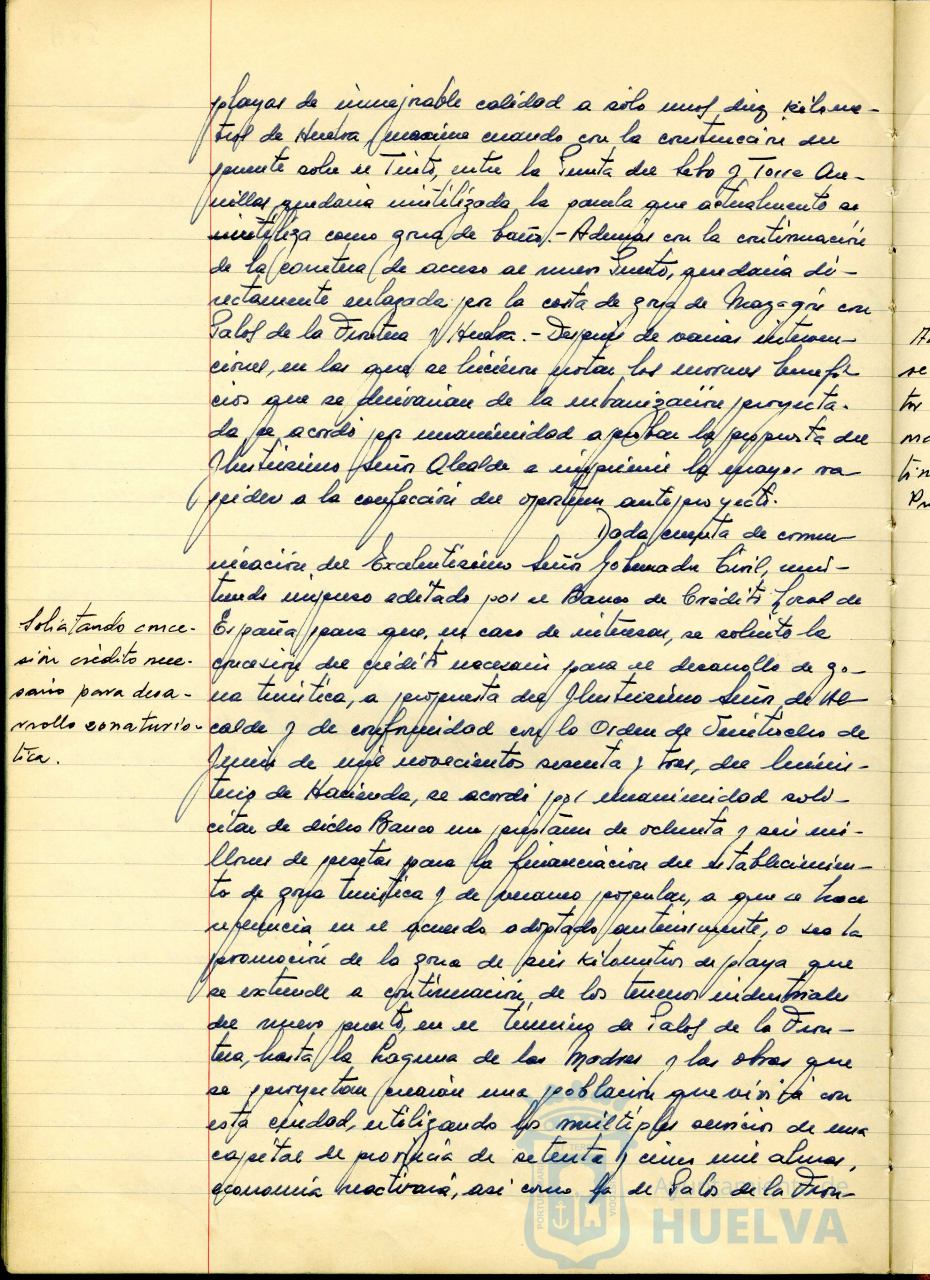 playas de inmejorable calidad a sólo unos diez kilome-
tros de Huelva, maxime cuando con la construcción del
puente sobre el Tinto, entre la Punta del Sebo y Torre Are-
nillas, quedaria inutilizada la parcela que actualmente se
utiliza como zona de baño.- Además con la continuación
de la carretera de acceso al nuevo Puerto, quedaria di-
rectamente enlazada por la costa de zona de Mazagón con
Palos de la Frontera y Huelva.- Después de varias interven-
ciones, en las que se hicieron notar los enormes benefi-
cios que se derivarian de la urbanización proyecta-
da se acordó por unanimidad aprobar la propuesta del
Ilustrisimo Señor Alcalde e imprimir la mayor ra
pidez a la confección del oportuno anteproyecto.
Dada cuenta de comu-
nicación del Excelentisimo Señor Gobernador Civil, remi-
tiendo impreso editado por el Banco de Crédito Local de
España para que, en caso de interesar, se solicite la
concesión del crédito necesario para el desarrollo de zo-
na turistica, a propuesta del Ilustrisimo Señor de Al
calde y de conformidad con la Orden de Veintiocho de
Junio de mil novecientos sesenta y tres, del Minis-
terio de Hacienda, se acordó por unanimidad soli-
citar de dicho Banco un préstamo de ochenta y seis mi-
llones de pesetas para la financiación del establecimien-
to de zona turistica y de veraneo popular, a que se hace
referencia en el acuerdo adoptado anteriormente, o sea la
promoción de la zona de seis kilometros de playa que
se extiende a continuación, de los terrenos industriales
del nuevo puerto, en el término de Palos de la Fron-
tera, hasta la Laguna de las Madres y las obras que
se proyectan crearán una población que vivirá con
esta ciudad, utilizando los múltiples servicios de una
capital de provincia de setenta y cinco mil almas,
economia reactivará, asi como la de Palos de la Fron-
Solicitando conce-
sión crédito nece-
sario para desa-
rrollo zona turis-
tica.
Ayuntamiento de
HUELVA